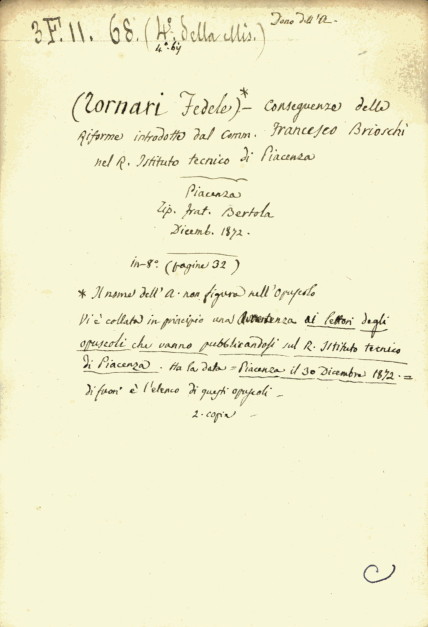 Dono dell'A.
3F.11. 68. (4ª. della Mis.)
4ª. bis
(Tornari Fedele)*— Conseguenze delle
Riforme introdotte dal Comm. Francesco Brioschi
nel R. Istituto tecnico di Piacenza
Piacenza
Tip. frat. Bertola
Dicemb. 1872.
in-8° (pagine 32)
* Il nome dell'A. non figura nell'Opuscolo
Vi è collata in principio una Avvertenza ai lettori degli
opuscoli che vanno pubblicandosi sul R. Istituto tecnico
di Piacenza. Ha la data = Piacenza il 30 Dicembre 1872. =
di fuori è l'elenco di questi opuscoli —
2. copia —